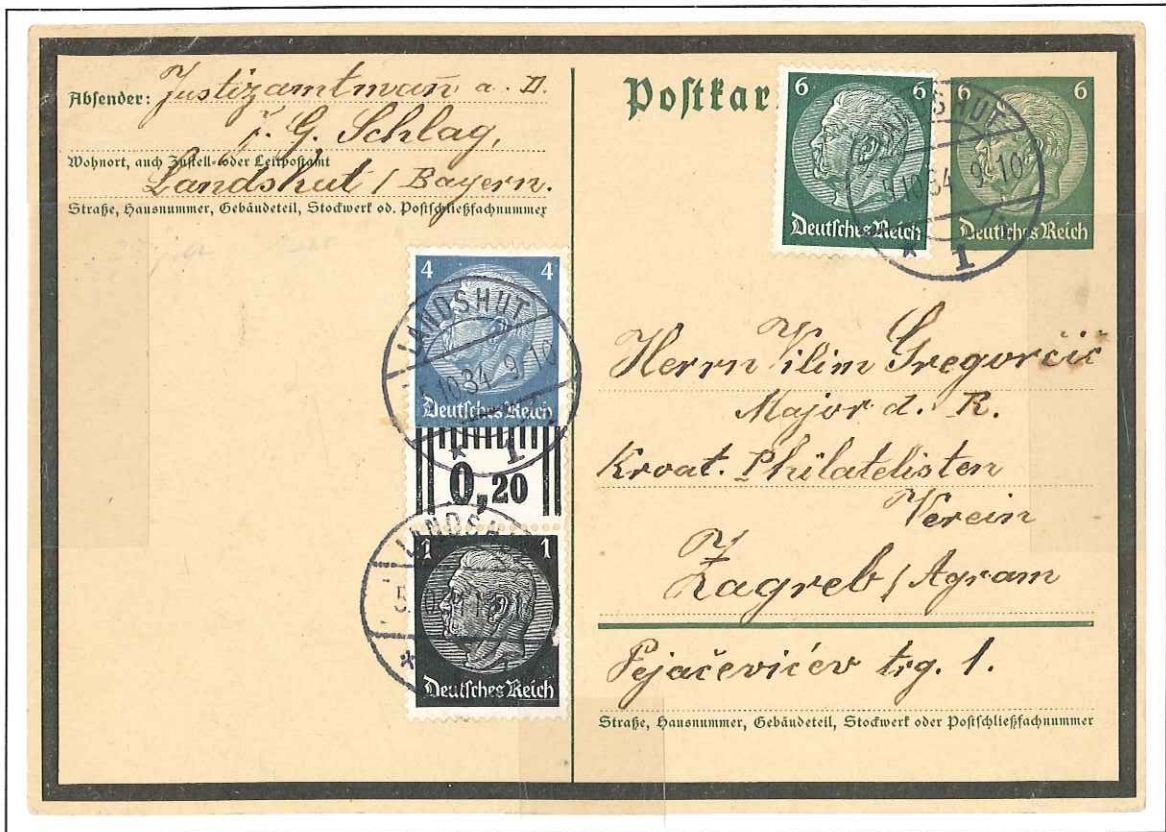 Absender: Justizamtmann a. D.
J. G. Schlag,
Wohnort, auch Zustell- oder Leitpostamt
Landshut / Bayern.
Straße, Hausnummer, Gebäudeteil, Stockwerk od. Postschließfachnummer
Postkar
6 6
Deutsches Reich
6 6
Deutsches Reich
LANDSHUT
5.10.34 9-10
* 1
4 4
LANDSHUT
5.10.34 9-10
Deutsches Reich
* 1
0,20
LANDSH
1 1
Deutsches Reich
Herrn Vilim Gregorčić
Major d. R.
Kroat. Philatelisten
Verein
Zagreb / Agram
Pejačevićev trg. 1.
Straße, Hausnummer, Gebäudeteil, Stockwerk oder Postschließfachnummer